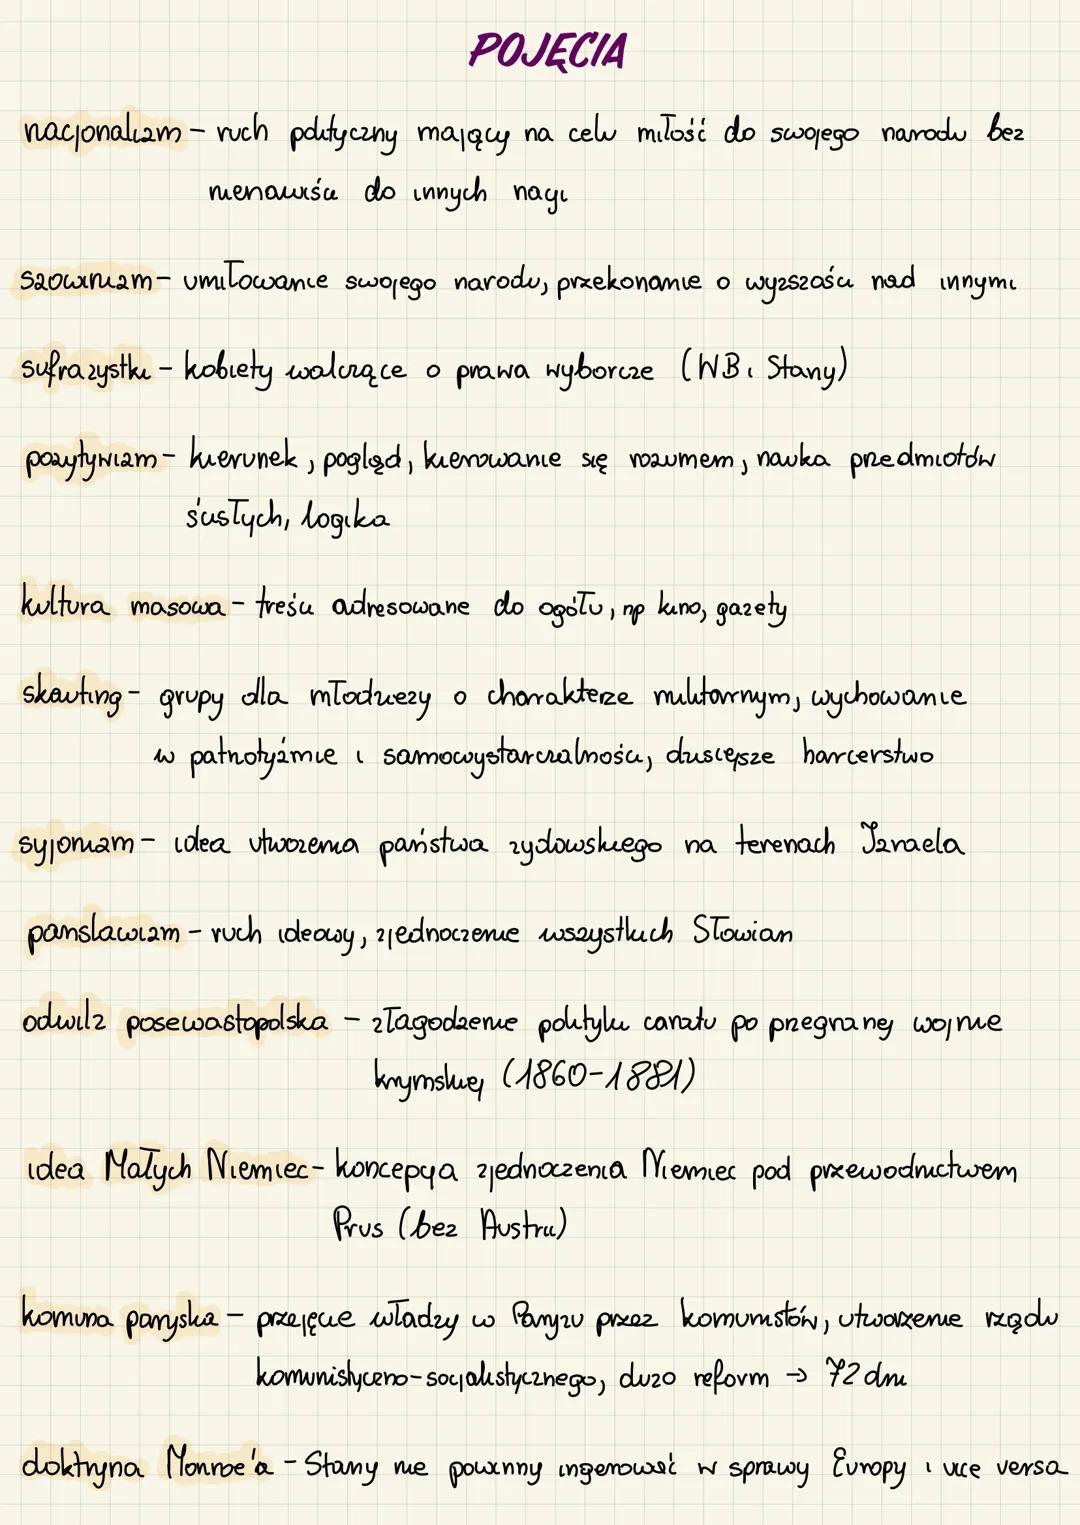 POJĘCIA
nacjonalizm - ruch polityczny mający na celu miłość do swojego narodu bez
nienawiści do innych nacji
szowinizm - umiłowanie swojego narodu, przekonanie o wyższości nad innymi
sufrażystki - kobiety walczące o prawa wyborcze (WB i Stany)
pozytywizm - kierunek, pogląd, kierowanie się rozumem, nauka przedmiotów
ścisłych, logika
kultura masowa - treści adresowane do ogółu, np kino, gazety
skauting - grupy dla młodzieży o charakterze militarnym, wychowanie
w patriotyźmie i samowystarczalności, dzisiejsze harcerstwo
syjonizm - idea utworzenia państwa żydowskiego na terenach Izraela
panslawizm - ruch ideowy, zjednoczenie wszystkich Słowian
odwilż posewastopolska - złagodzenie polityki caratu po przegranej wojnie
krymskiej (1860-1881)
idea Małych Niemiec - koncepcja zjednoczenia Niemiec pod przewodnictwem
Prus (bez Austrii)
komuna paryska - przejęcie władzy w Paryżu przez komunistów, utworzenie rządu
komunistyczno-socjalistycznego, dużo reform → 72 dni
doktryna Monroe'a - Stany nie powinny ingerować w sprawy Europy i vice versa